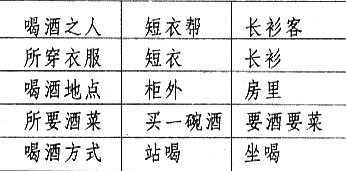 喝酒之人 短衣帮 长衫客
所穿衣服 短衣 长衫
喝酒地点 柜外 房里
所要酒菜 买一碗酒 要酒要菜
喝酒方式 站喝 坐喝